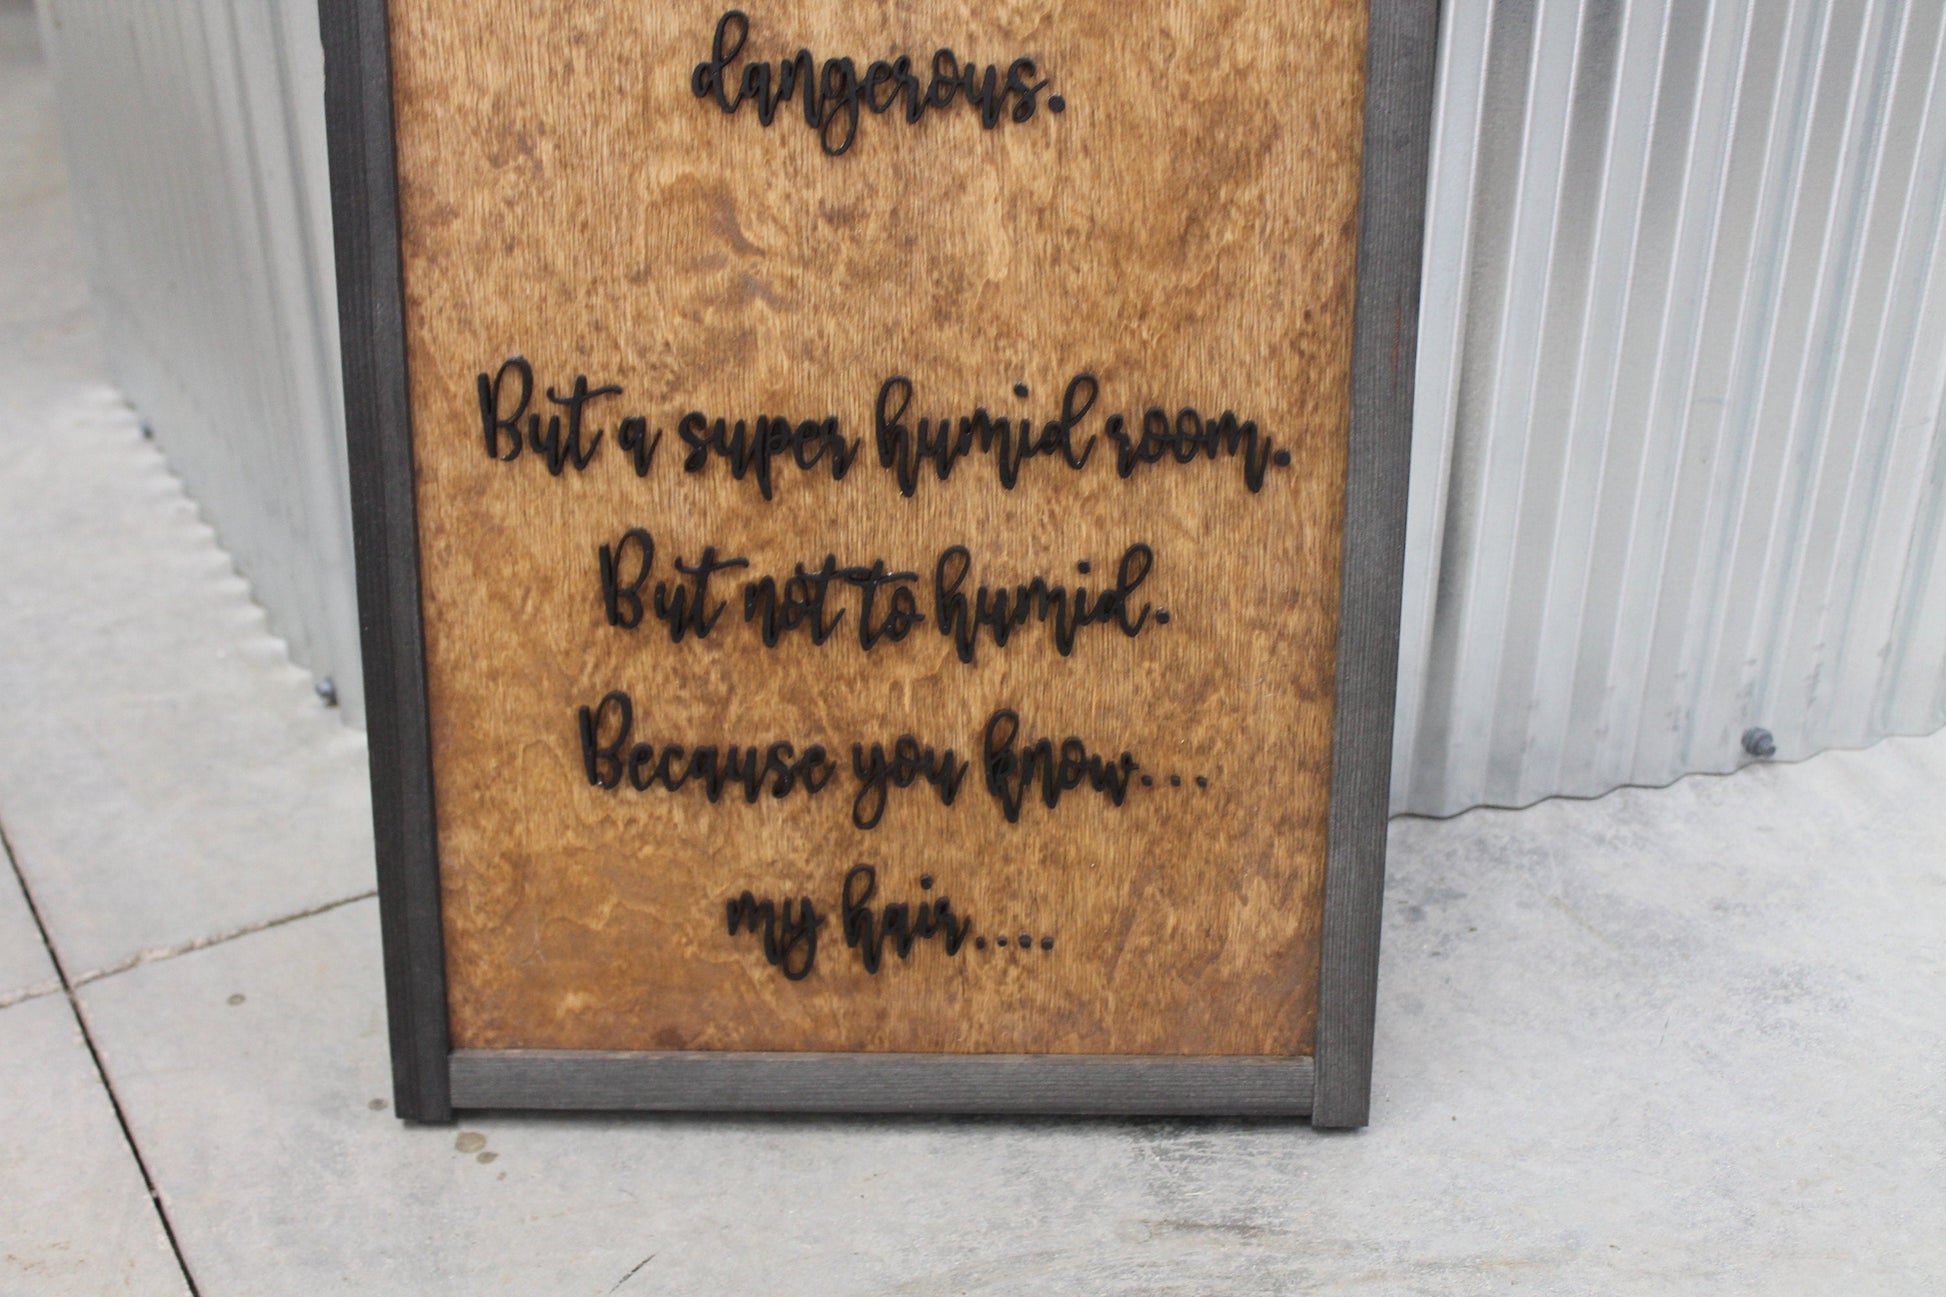 dangerous.
But a super humid room.
But not to humid.
Because you know...
my hair....